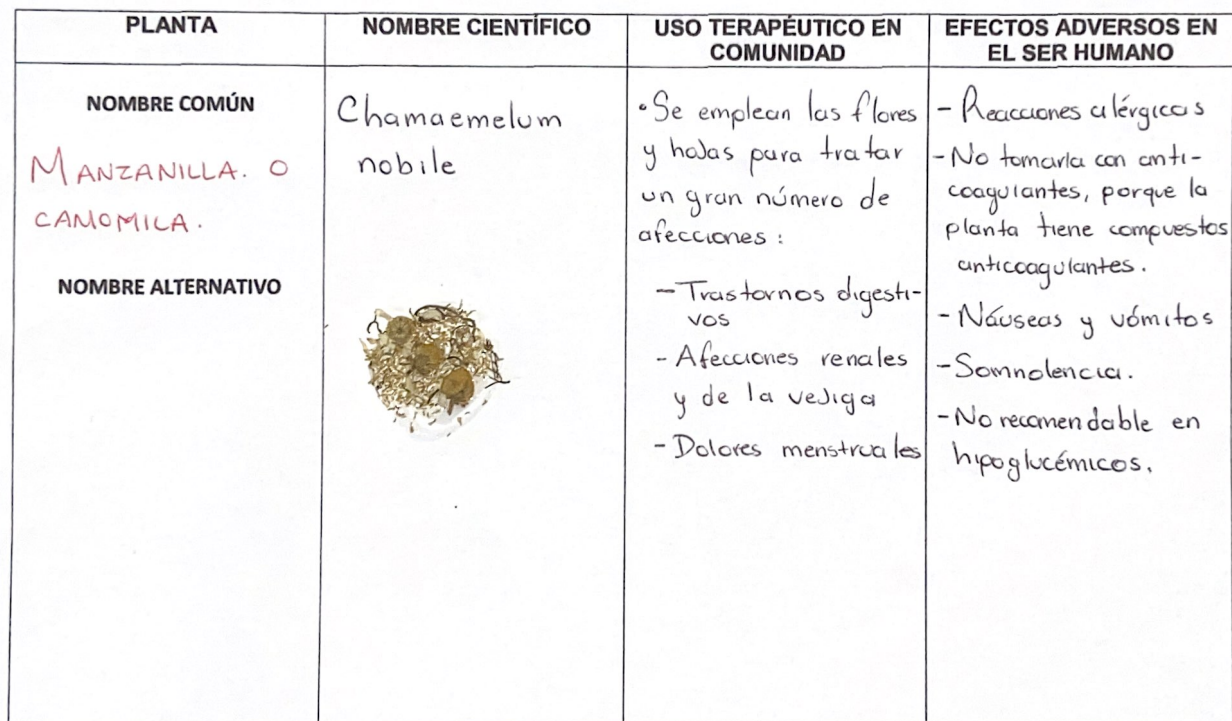 PLANTA
NOMBRE CIENTÍFICO
USO TERAPÉUTICO EN
COMUNIDAD
EFECTOS ADVERSOS EN
EL SER HUMANO
NOMBRE COMÚN
MANZANILLA. O
CAMOMILA.
NOMBRE ALTERNATIVO
Chamaemelum
nobile
• Se emplean las flores
y hojas para tratar
un gran número de
afecciones:
- Trastornos digesti-
vos
- Afecciones renales
y de la vejiga
- Dolores menstruales
- Reacciones alérgicas
- No tomarla con anti-
coagulantes, porque la
planta tiene compuestos
anticoagulantes.
- Náuseas y vómitos
- Somnolencia.
- No recomendable en
hipoglucémicos.